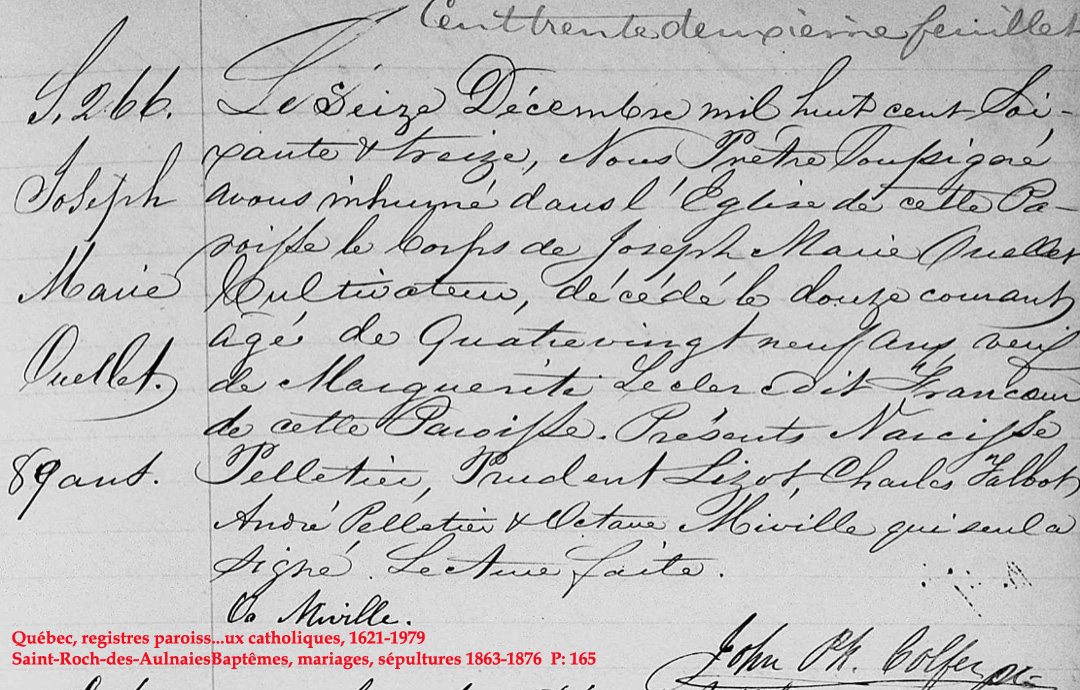 Cent trente deuxième feuillet
S. 266.
Joseph
Marie
Ouellet.
89 ans.
Le Seize Décembre mil huit cent Soi-
xante & treize, Nous Prêtre Soussigné
avons inhumé dans l'Église de cette Pa-
roisse le Corps de Joseph Marie Ouellet
Cultivateur, décédé le douze courant
agé de Quatrevingt neuf ans, veuf
de Marguerite Leclerc dit Francoeur
de cette Paroisse. Présents Narcisse
Pelletier, Prudent Lizot, Charles Talbot
André Pelletier & Octave Miville qui seul a
signé. Lecture faite.
O. Miville.
John Ph. Colfer
Québec, registres paroiss...ux catholiques, 1621-1979
Saint-Roch-des-AulnaiesBaptêmes, mariages, sépultures 1863-1876 P: 165